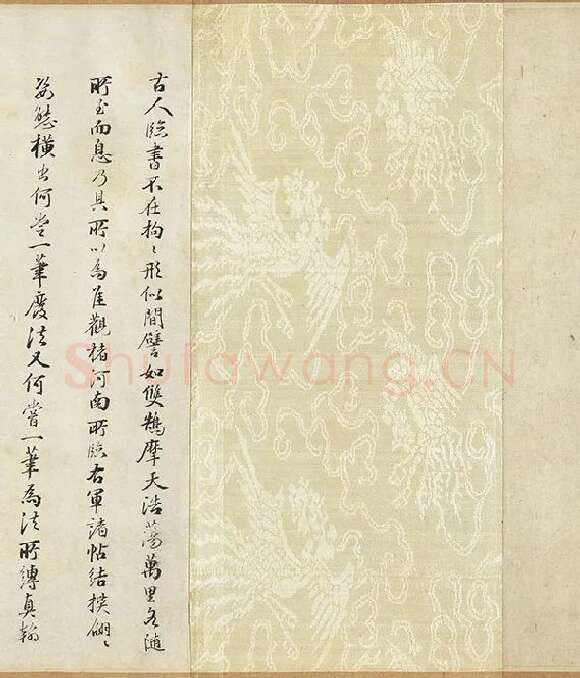 古人臨書不在拘〻形似間譬如雙鵠摩天浩蕩萬里各隨
所至而息乃其所以為佳觀褚河南所臨右軍諸帖結摸
姿態橫出何嘗一筆廢法又何嘗一筆為法所縛真翰
Shufawang.CN